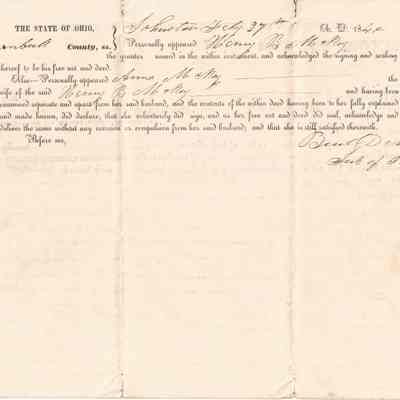 THE STATE OF OHIO, } Johnston Feby 27th A. D. 184
County, ss. } Personally appeared Henry B McKoy
the grantor named in the within instrument, and acknowledged the signing and sealing
thereof to be his free act and deed.
Also—Personally appeared Anna McKoy the
wife of the said Henry B McKoy and having been
examined separate and apart from her said husband, and the contents of the within deed having been by her fully explained
and made known, did declare, that she voluntarily did sign, and as her free act and deed did seal, acknowledge and
deliver the same without any coercion or compulsion from her said husband; and that she is still satisfied therewith.
Before me,
Just of